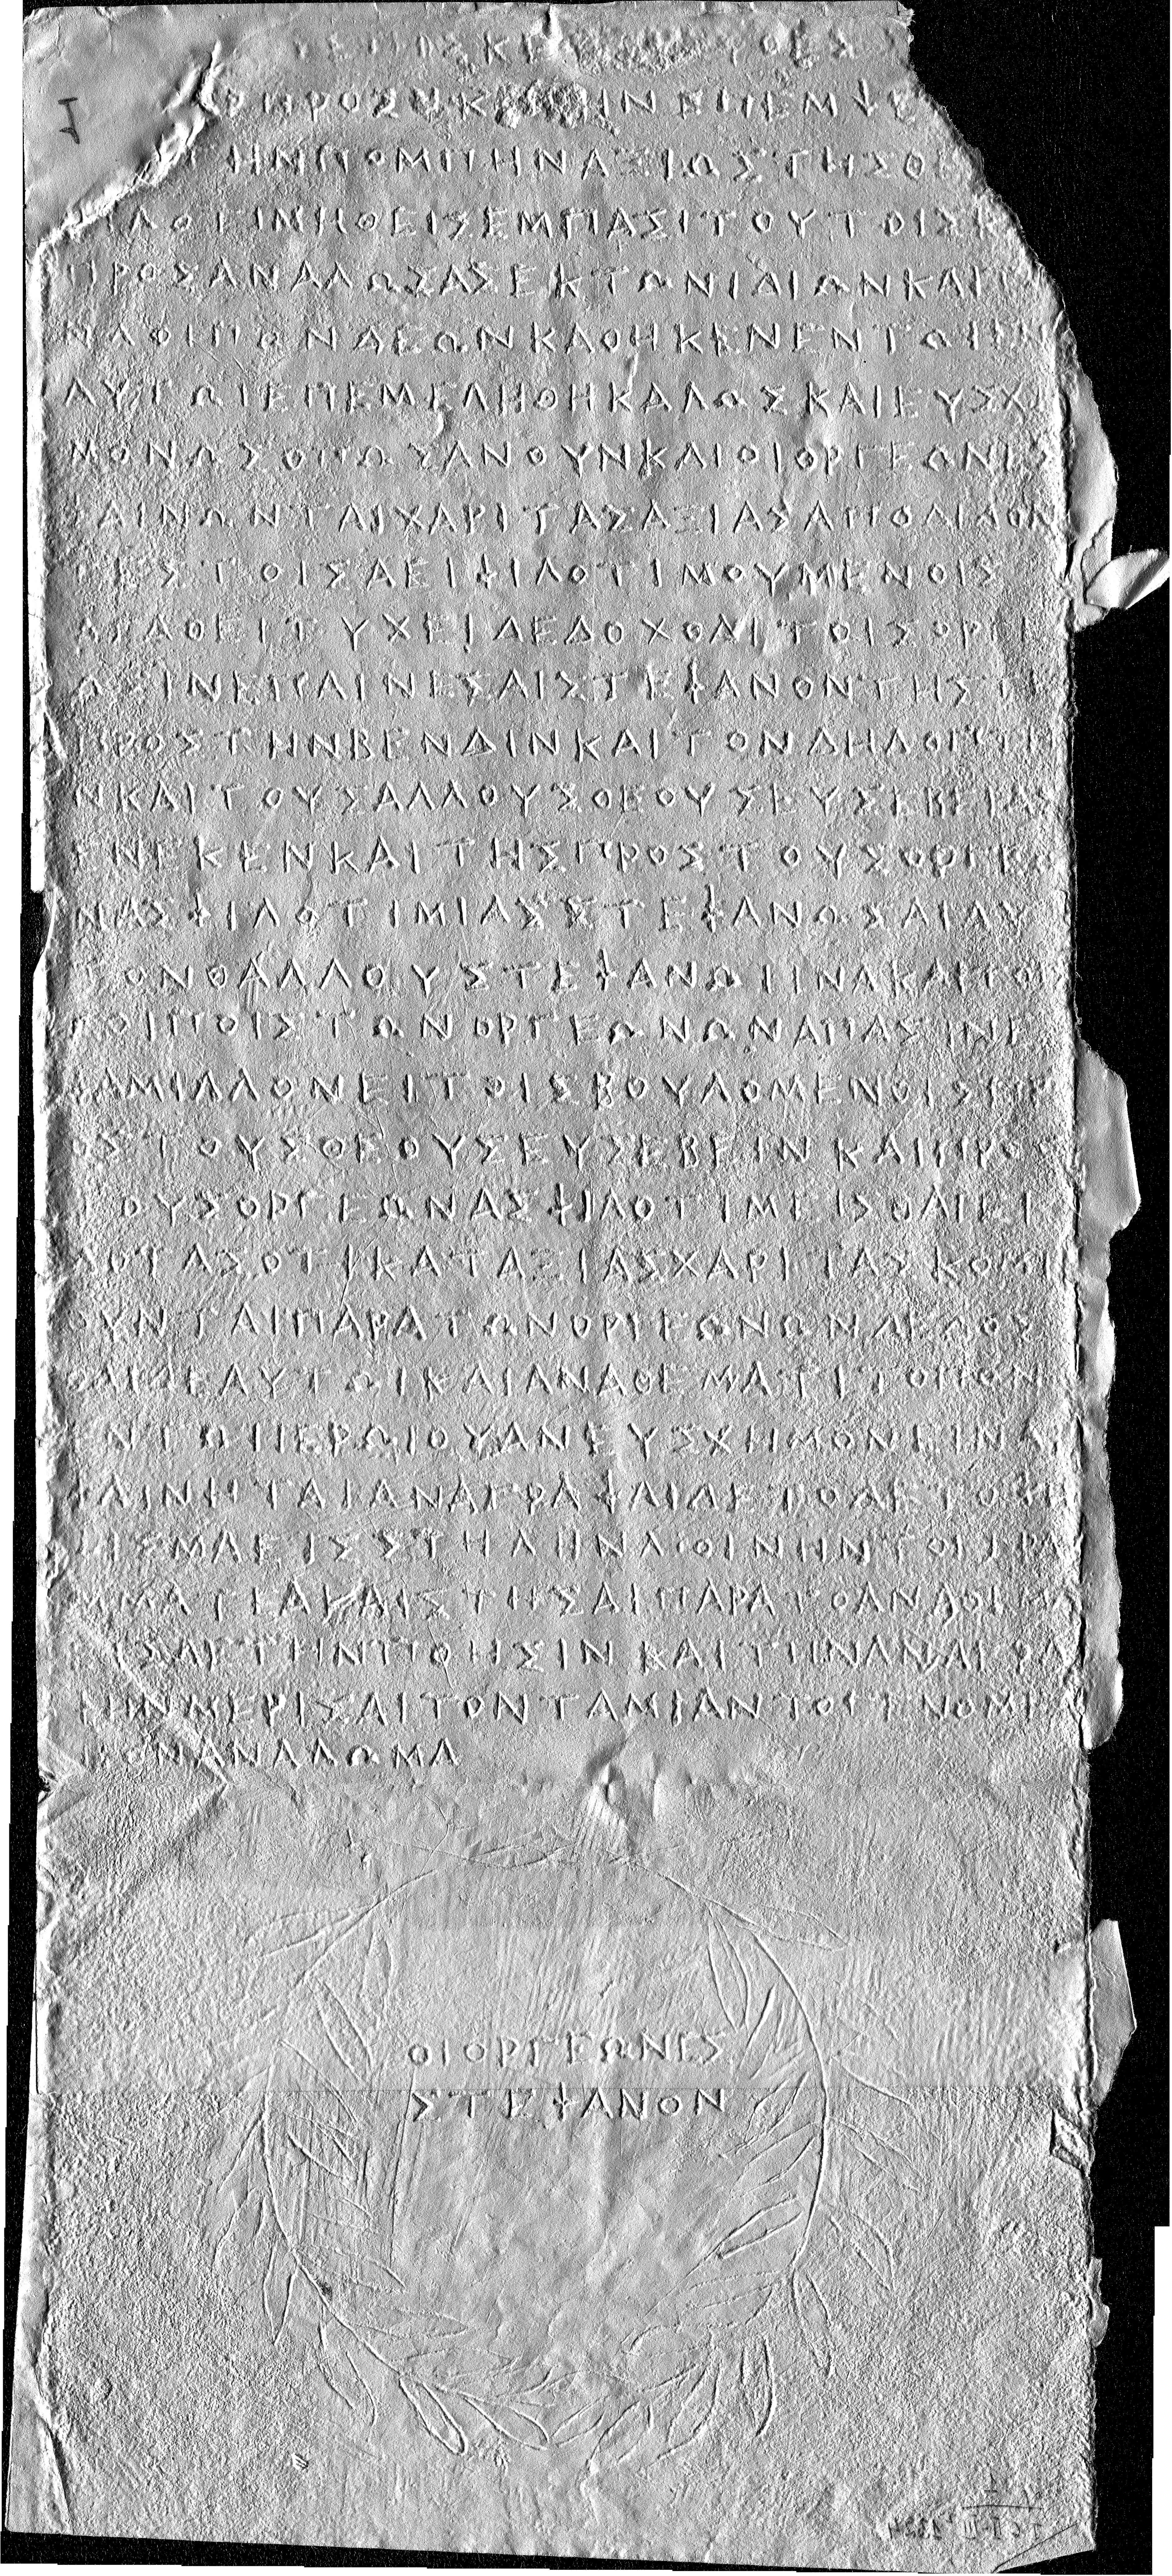 ΤΕΕΠΙΣΚΕ
ΠΡΟΣΗΚ ΙΝΕΠΕΜΨΕ
ΤΗΝΠΟΜΠΗΝΑΞΙΩΣΤΗΣΘΕ
ΦΙΛΟΤΙΜΗΘΕΙΣΕΜΠΑΣΙΤΟΥΤΟΙΣΚ
ΠΡΟΣΑΝΑΛΩΣΑΣΕΚΤΩΝΙΔΙΩΝΚΑΙ
ΩΝΔΕΩΝΚΑΘΗΚΕΝΕΝΤΩΙ
ΑΥΤΩΙΕΠΕΜΕΛΗΘΗΚΑΛΩΣΚΑΙΕΥΣΧΗ
ΜΟΝΩΣΟΠΩΣΑΝΟΥΝΚΑΙΟΙΟΡΓΕΩΝΕΣ
ΦΑΙΝΩΝΤΑΙΧΑΡΙΤΑΣΑΞΙΑΣΑΠΟΔΙΔΟΝ
ΤΕΣΤΟΙΣΑΕΙΦΙΛΟΤΙΜΟΥΜΕΝΟΙΣ
ΑΓΑΘΕΙΤΥΧΕΙΔΕΔΟΧΘΑΙΤΟΙΣΟΡΓΕ
ΩΣΙΝΕΠΑΙΝΕΣΑΙΣΤΕΦΑΝΟΝΤΗΣΤΕ
ΠΡΟΣΤΗΝΒΕΝΔΙΝΚΑΙΤΟΝΔΗΛΟΠΤΗ
ΝΚΑΙΤΟΥΣΑΛΛΟΥΣΘΕΟΥΣΕΥΣΕΒΕΙΑΣ
ΕΝΕΚΕΝΚΑΙΤΗΣΠΡΟΣΤΟΥΣΟΡΓΕΩ
ΝΑΣΦΙΛΟΤΙΜΙΑΣΣΤΕΦΑΝΩΣΑΙΑΥ
ΤΟΝΘΑΛΛΟΥΣΤΕΦΑΝΩΙΙΝΑΚΑΙΤΟΙ
ΛΟΙΠΟΙΣΤΩΝΟΡΓΕΩΝΩΝΑΠΑΣΙΝΕ
ΦΑΜΙΛΛΟΝΕΙΤΟΙΣΒΟΥΛΟΜΕΝΟΙΣΠΡ
ΟΣΤΟΥΣΘΕΟΥΣΕΥΣΕΒΕΙΝΚΑΙΠΡΟΣ
ΤΟΥΣΟΡΓΕΩΝΑΣΦΙΛΟΤΙΜΕΙΣΘΑΙΕΙ
ΔΟΤΑΣΟΤΙΚΑΤΑΞΙΑΣΧΑΡΙΤΑΣΚΟΜΙ
ΟΥΝΤΑΙΠΑΡΑΤΩΝΟΡΓΕΩΝΩΝΔΕΔΟΣ
ΘΑΙΔΕΑΥΤΩΙΚΑΙΑΝΑΘΕΜΑΤΙΤΟΠΟΝ
ΕΝΤΩΙΙΕΡΩΙΟΥΑΝΕΥΣΧΗΜΟΝΕΙΝ
ΦΑΙΝΗΤΑΙΑΝΑΓΡΑΨΑΙΔΕΤΟΔΕΤΟΨΗ
ΦΙΣΜΑΕΙΣΣΤΗΛΗΝΛΙΘΙΝΗΝΤΟΙΓΡΑ
ΜΜΑΤΕΑΚΑΙΣΤΗΣΑΙΠΑΡΑΤΟΑΝΑΘΗΜΑ
ΕΙΣΔΕΤΗΝΠΟΗΣΙΝΚΑΙΤΗΝΑΝΑΓΡΑ
ΦΗΝΜΕΡΙΣΑΙΤΟΝΤΑΜΙΑΝΤΟΓΕΝΟΜΕ
ΝΟΝΑΝΑΛΩΜΑ
ΟΙΟΡΓΕΩΝΕΣ
ΣΤΕΦΑΝΟΝ